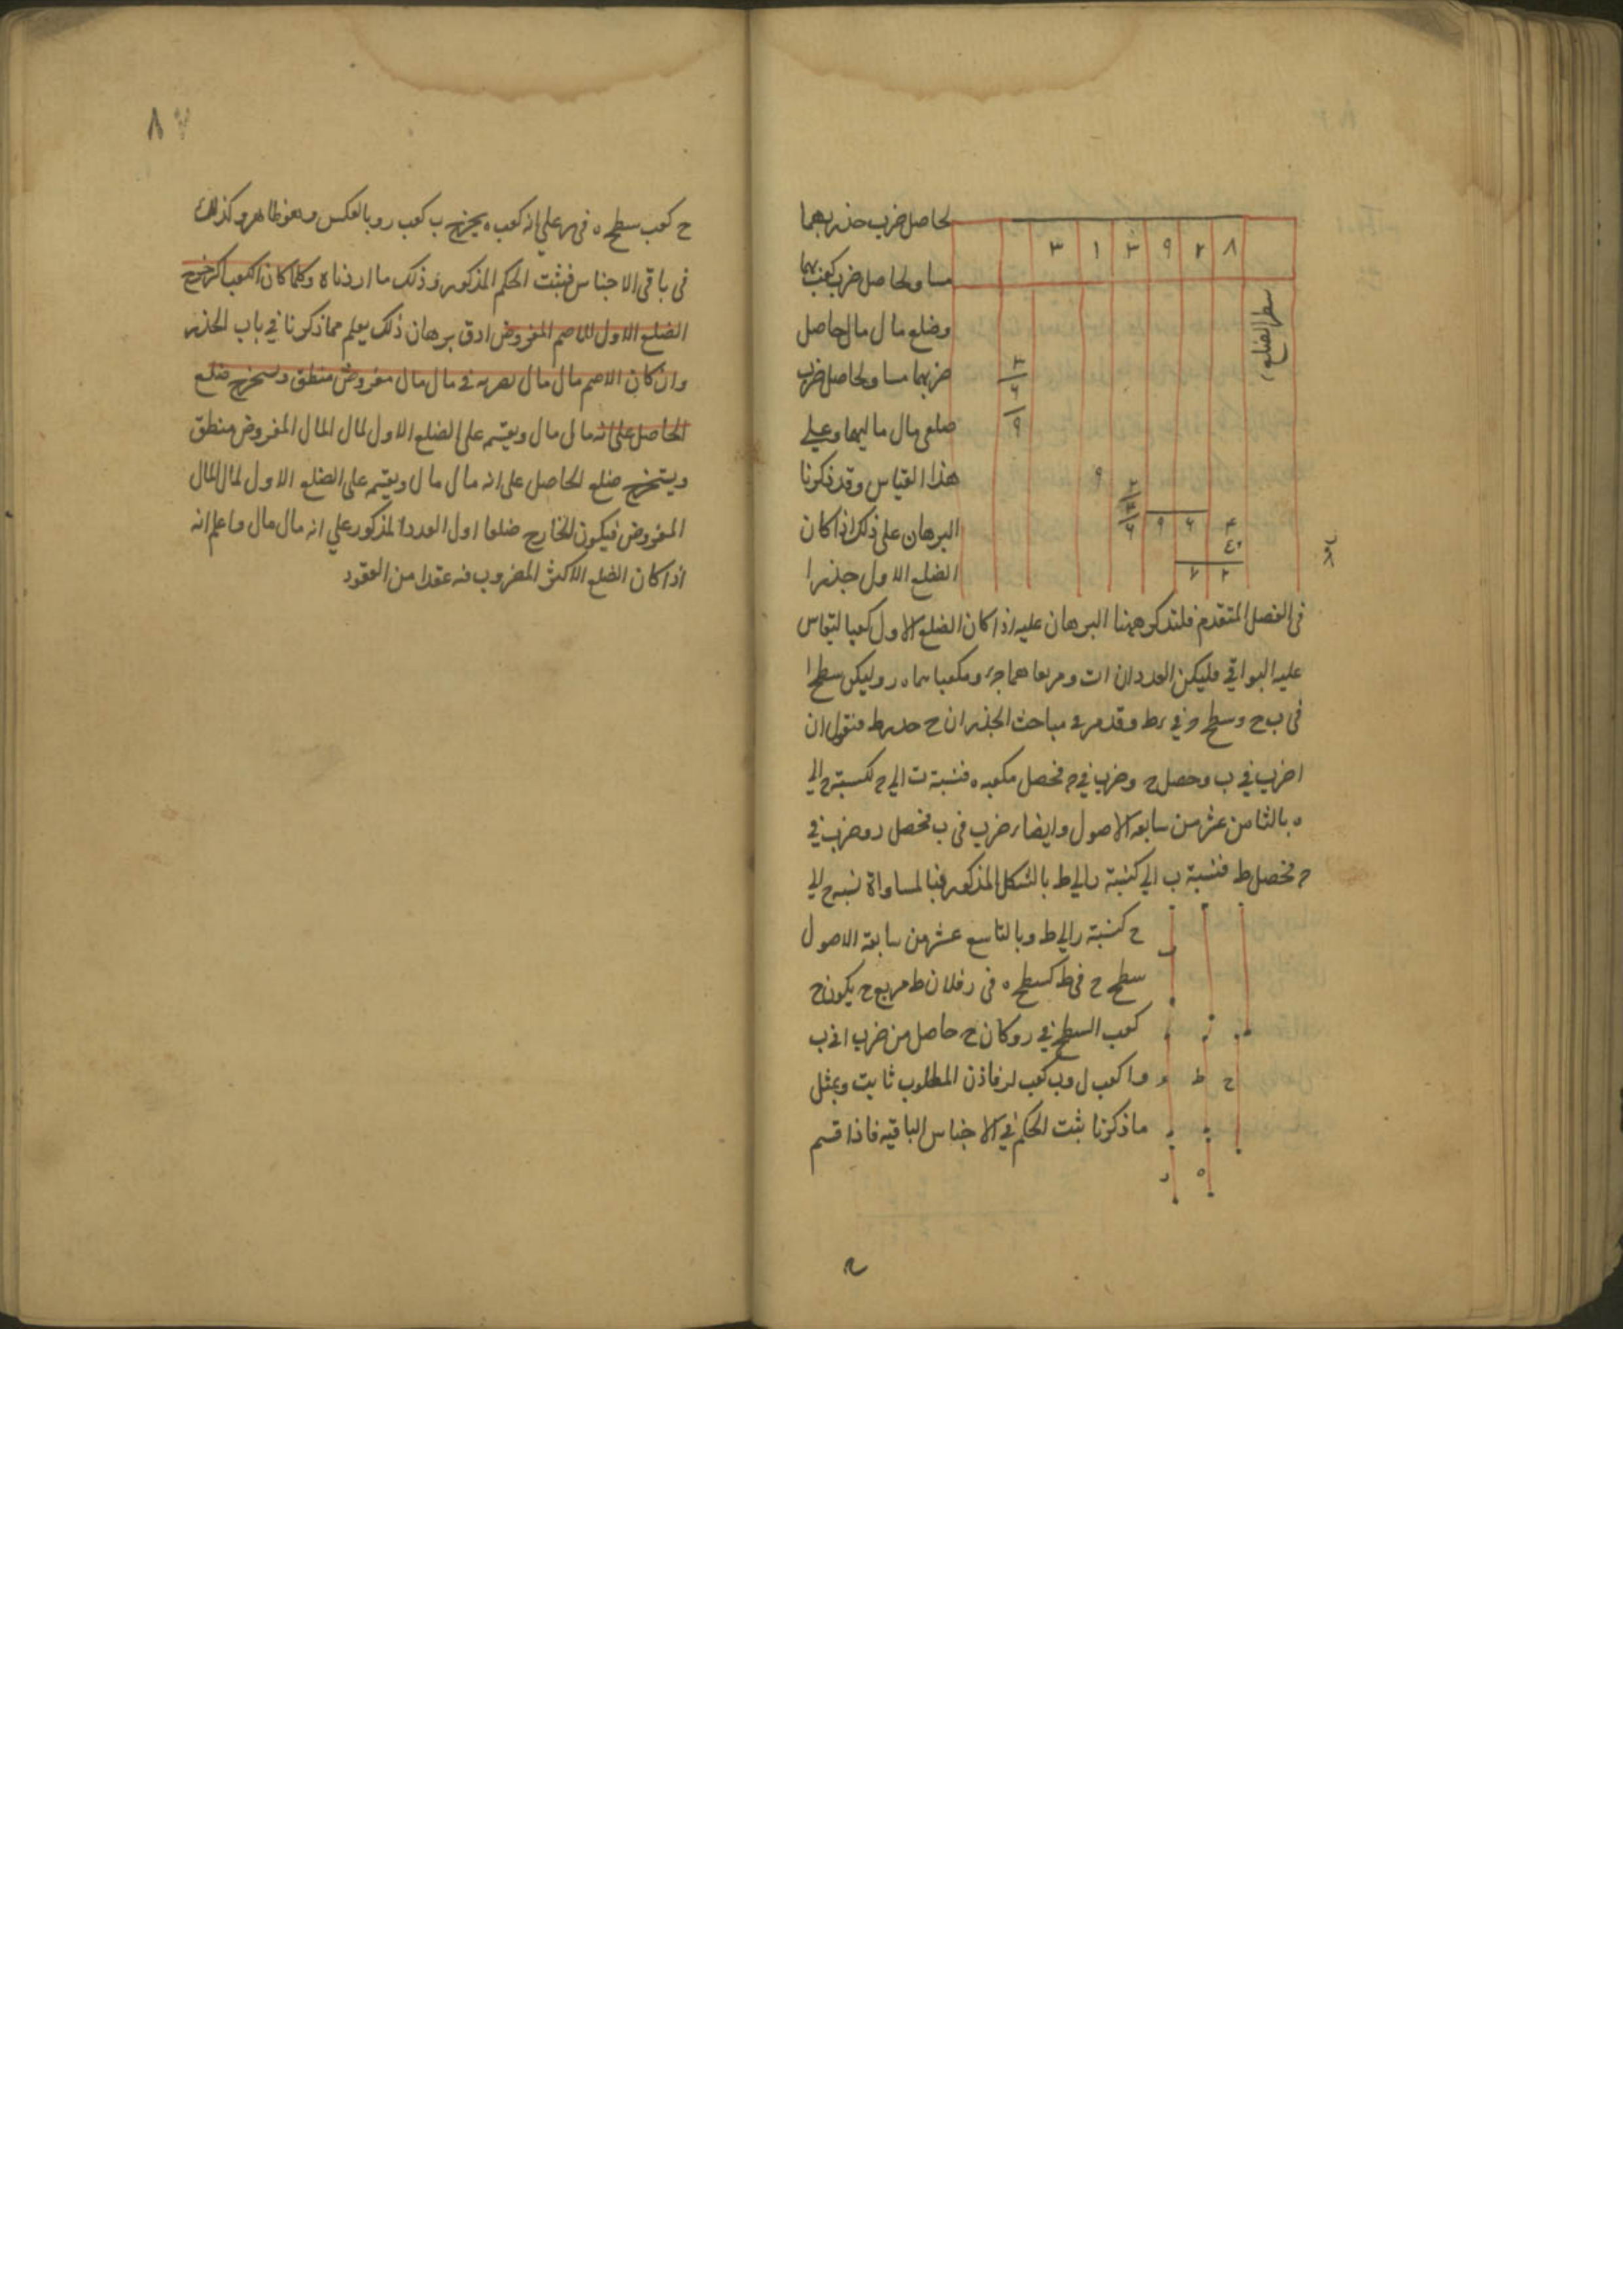 لحاصل ضرب جذريهما
مساو لحاصل ضرب كعبيهما
وضلع مال مال حاصل
ضربهما مساو لحاصل ضرب
ضلعى مال ماليهما وعلى
هذا القياس وقد ذكرنا
البرهان على ذلك اذا كان
الضلع الاول جذرا
٣ ١ ٣ ٩ ٢ ٨
سطر الضلع
٣
٦
٩
٩
٢
٣
٦ ٩ ٦ ٣
٤٠
٦ ٢
فى الفصل المتقدم فلنذكر ههنا البرهان عليه اذا كان الضلع الاول كعبا لتقاس
عليه البواقي فليكن العددان ا ب ومربعاهما ج ومكعباهما ه ر وليكن سطح ا
فى ب ح وسطح في ط وقد مر في مباحث الجذر ان ح جذر ط فنقول ان
ا ضرب في ب وحصل ح وضرب في ج فحصل مكعبه ه فنسبة ب الي ح كنسبة ح الي
ه بالثامن عشر من سابعة الاصول وايضا ضرب فى ب فحصل د وضرب في
ح فحصل ط فنسبة ب الي كنسبة ر الي ط بالشكل المذكور فبالمساواة نسبة ح الي
ح كنسبة ر الي ط وبالتاسع عشر من سابعة الاصول
سطح ح فى ط كسطح ه فى ر فلان ط مربع ح يكون ح
كعب السطح في ر وكان ح حاصل من ضرب ا في ب
وا كعب ل وب كعب لر فاذن المطلوب ثابت وبمثل
ماذكرنا يثبت الحكم في الاجناس الباقيه فاذا قسم
ح ط و
ه ر
٨٧
ح كعب سطح ه فى ر علي انه كعب ه يخرج ب كعب ر وبالعكس وهو ظاهر وكذلك
فى باقى الاجناس فثبت الحكم المذكور وذلك ما اردناه وكلما كان الكعب اكثر خرج
الضلع الاول للاصم المفروض ادق برهان ذلك يعلم مماذكرنا في باب الجذر
وان كان الاصم مال مال نضربه في مال مال مفروض منطق ونستخرج ضلع
الحاصل على انه مال مال ويقسم على الضلع الاول لمال المال المفروض منطق
ويستخرج ضلع الحاصل على انه مال مال ويقسم على الضلع الاول لمال المال
المفروض فيكون الخارج ضلعا اول العدد المذكور علي انه مال مال واعلم انه
اذا كان الضلع الاكثر المضروب فيه عقدا من العقود